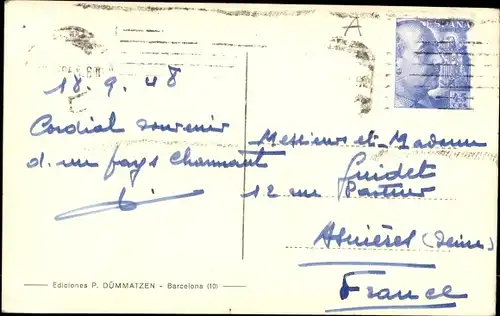 A
ESPAÑA
18.9.48
Cordial souvenir
d'un pays charmant
Messieurs et Madame
Guidet
12 rue Pasteur
Asnières (Seine)
France
Ediciones P. DÜMMATZEN - Barcelona (10)